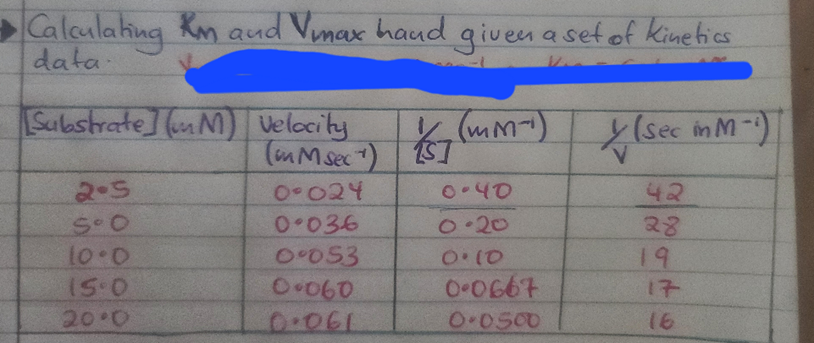 Calculating Km and Vmax hand given a set of kinetics
data.
[Substrate] (mM) Velocity (mM sec⁻¹) 1/[S] (mM⁻¹) 1/V (sec mM⁻¹)
2.5 0.024 0.40 42
5.0 0.036 0.20 28
10.0 0.053 0.10 19
15.0 0.060 0.0667 17
20.0 0.061 0.0500 16